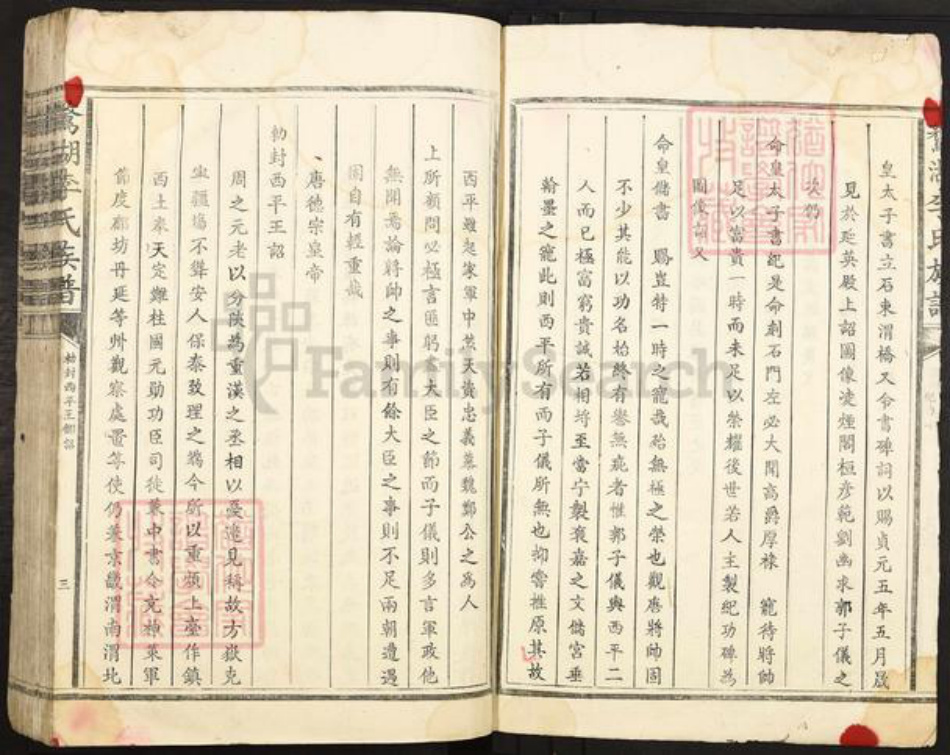 皇太子書立石東渭橋又令書碑詞以賜貞元五年五月晟
見於延英殿上詔圖像凌煙閣桓彥範劉幽求郭子儀之
次仍
命皇太子書紀是命刻石門左必大開高爵厚祿 寵待將帥
足以富貴一時而未足以榮耀後世若人主製紀功碑
圖像詔又
命皇儲書 賜豈特一時之寵哉殆無極之榮也觀唐將帥固
不少其能以功名始終有譽無疵者惟郭子儀與西平二
人而已極富窮貴誠若相埒至當宁製褒嘉之文儲宮垂
翰墨之寵此則西平所有而子儀所無也抑嘗推原其故
西平雖起家軍中然天資忠義慕魏鄭公之為人
上所顧問必極言匪躬盡大臣之節而子儀則多言軍政他
無聞焉論將帥之事則有餘大臣之事則不足兩朝遭遇
固自有輕重哉
唐德宗皇帝
勅封西平王詔
周之元老以分陝為重漢之丞相以憂邊見稱故方嶽克
疆埸不聳安人保泰致理之端今所以重煩上台作鎮
西土奉天定難柱國元勳功臣司徒兼中書令充神策軍
節度鄜坊丹延等州觀察處置等使仍兼京畿渭南渭北
鵞湖李氏族譜
勅封西平王制誥
三
鵞湖李氏族譜
FamilySearch